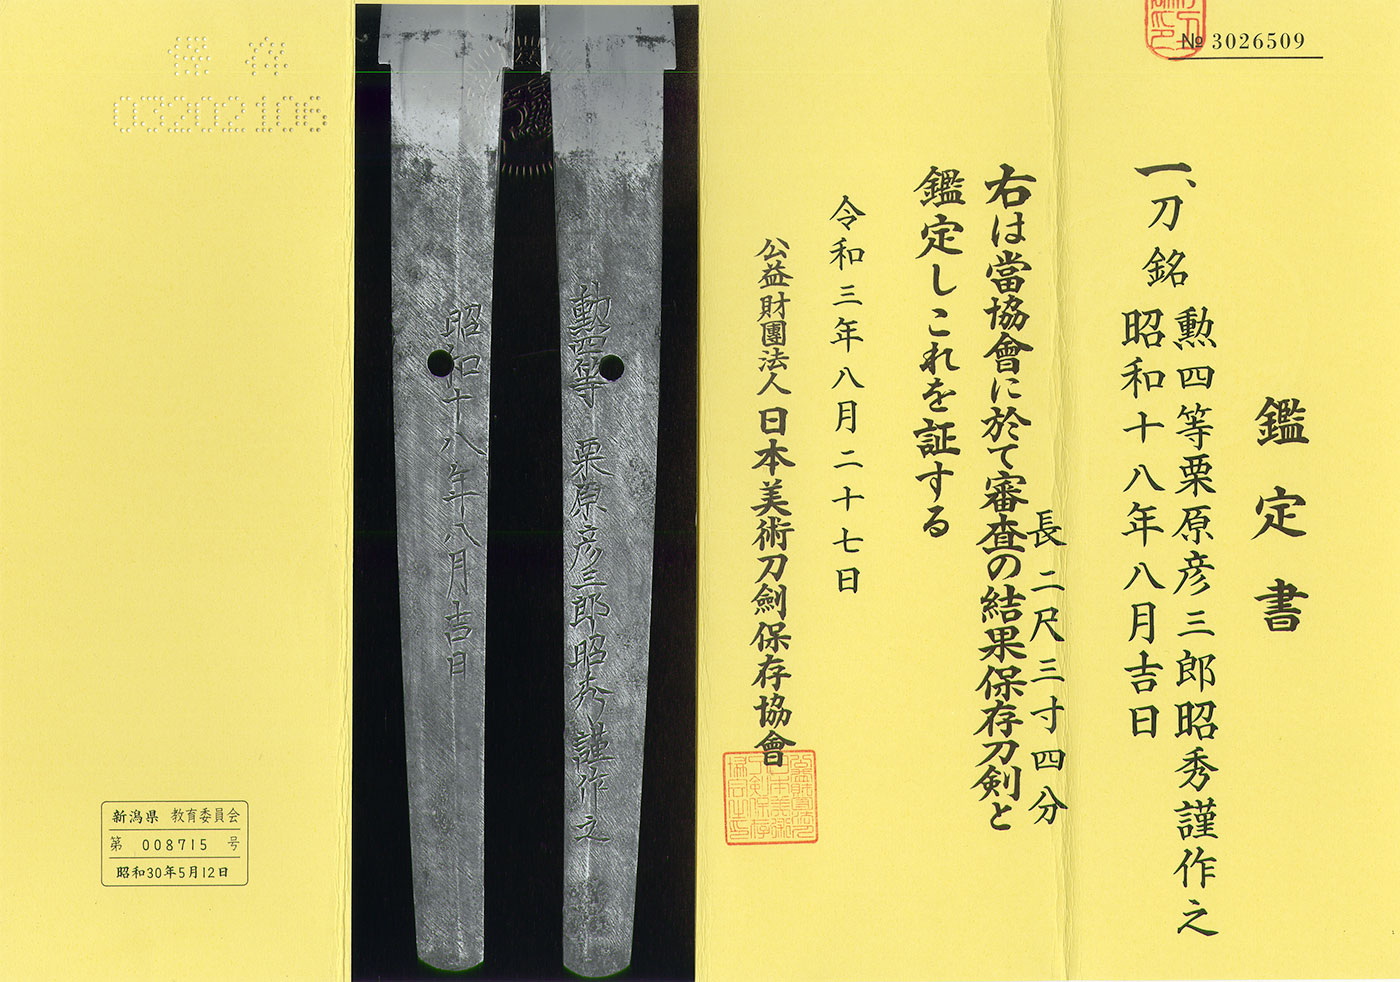 № 3026509
鑑定書
一、刀 銘 勲四等栗原彦三郎昭秀謹作之
昭和十八年八月吉日
長 二尺三寸四分
右は當協會に於て審査の結果保存刀剣と
鑑定しこれを証する
令和三年八月二十七日
公益財團法人 日本美術刀劍保存協會
勲四等 栗原彦三郎昭秀謹作之
昭和十八年八月吉日
保存
03202106
新潟県 教育委員会
第 008715 号
昭和30年5月12日